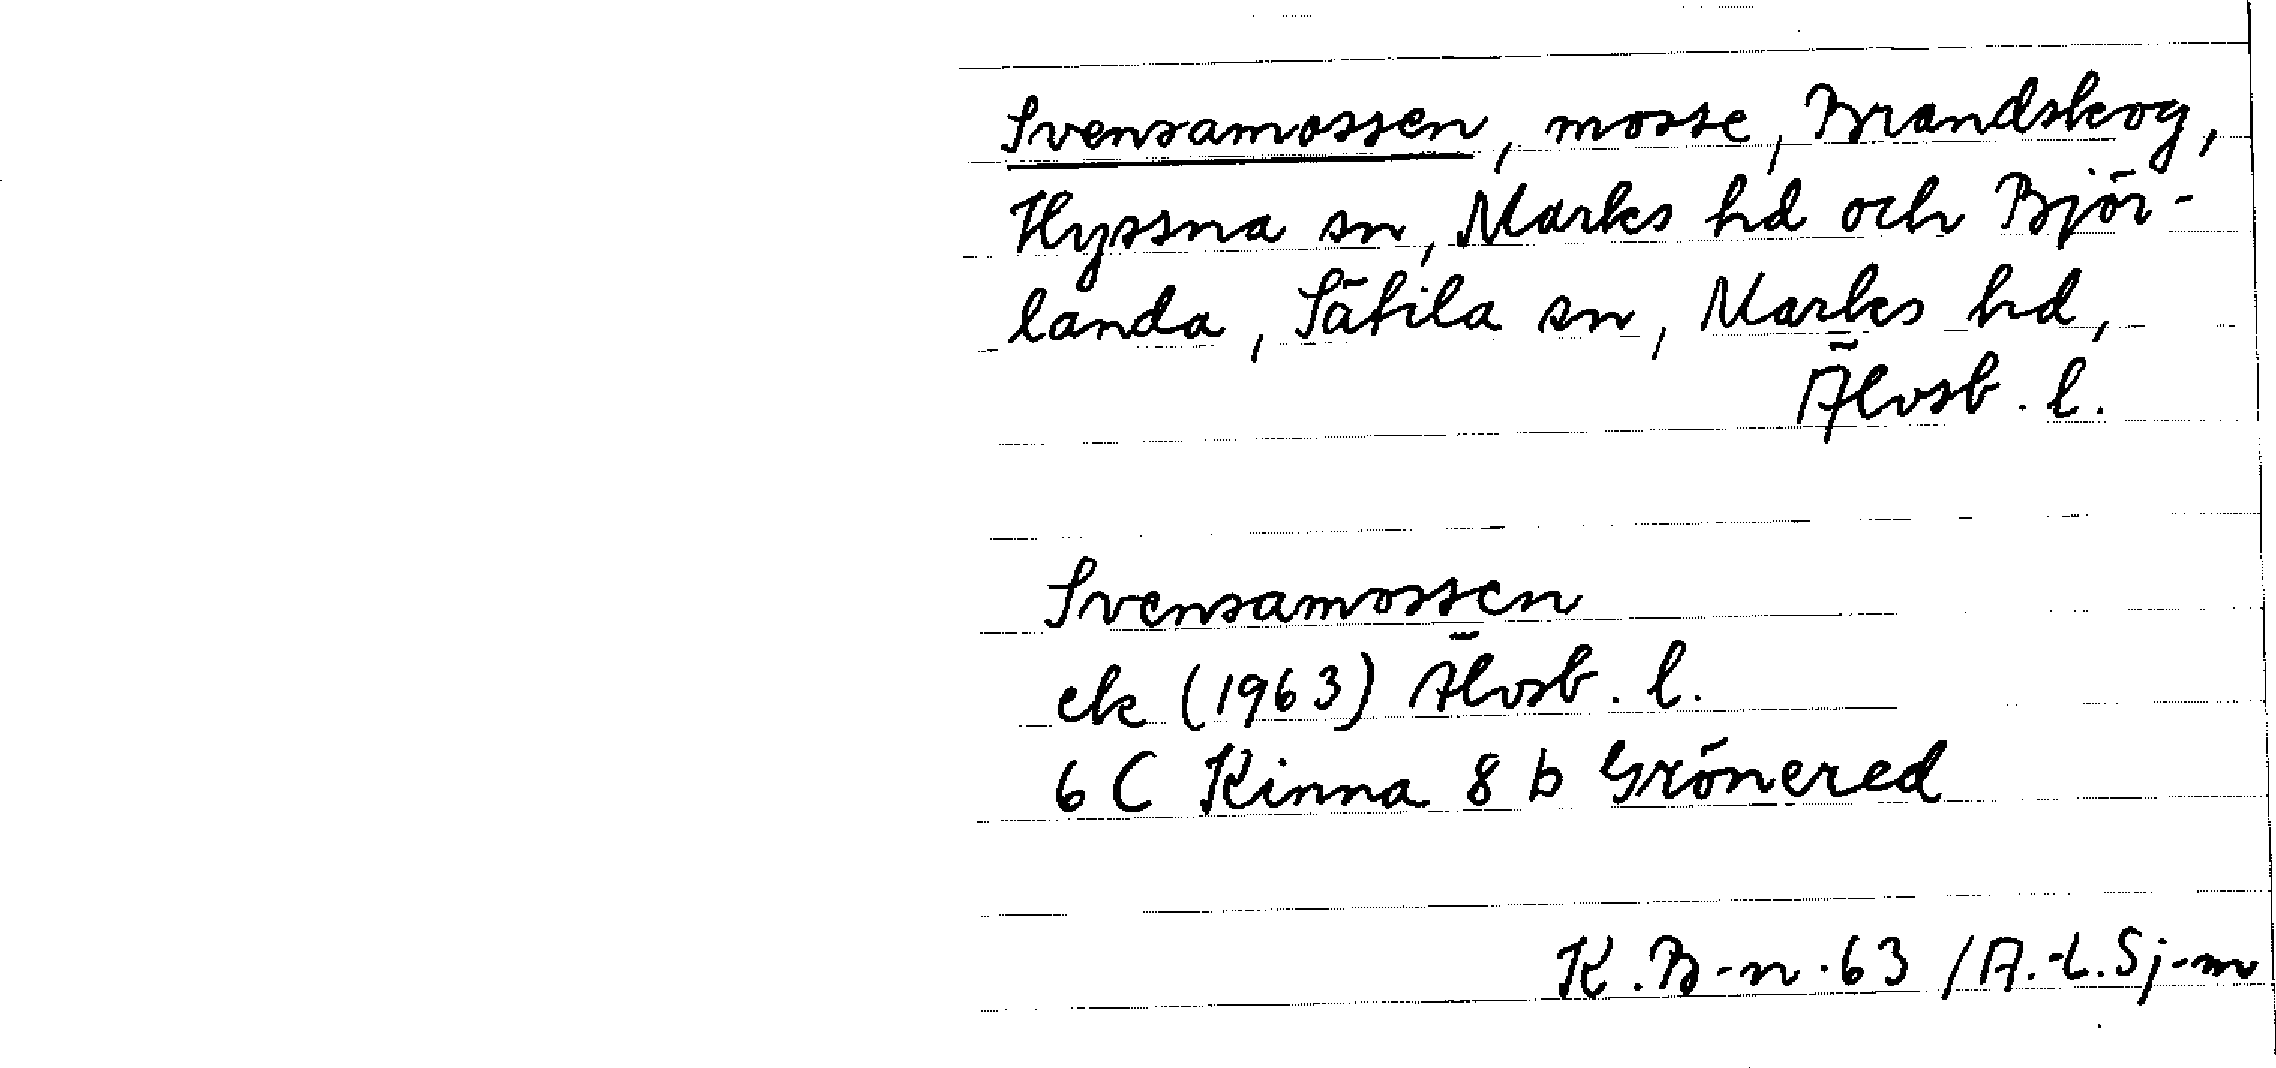 Svensamossen, mosse, Brandskog,
Hyssna sn, Marks hd och Björ-
landa, Sätila sn, Marks hd,
Älvsb. l.
Svensamossen
ek (1963) Älvsb. l.
6 C Kinna 8 b Grönered
K. B-n. 63 / A.-L. Sj-m